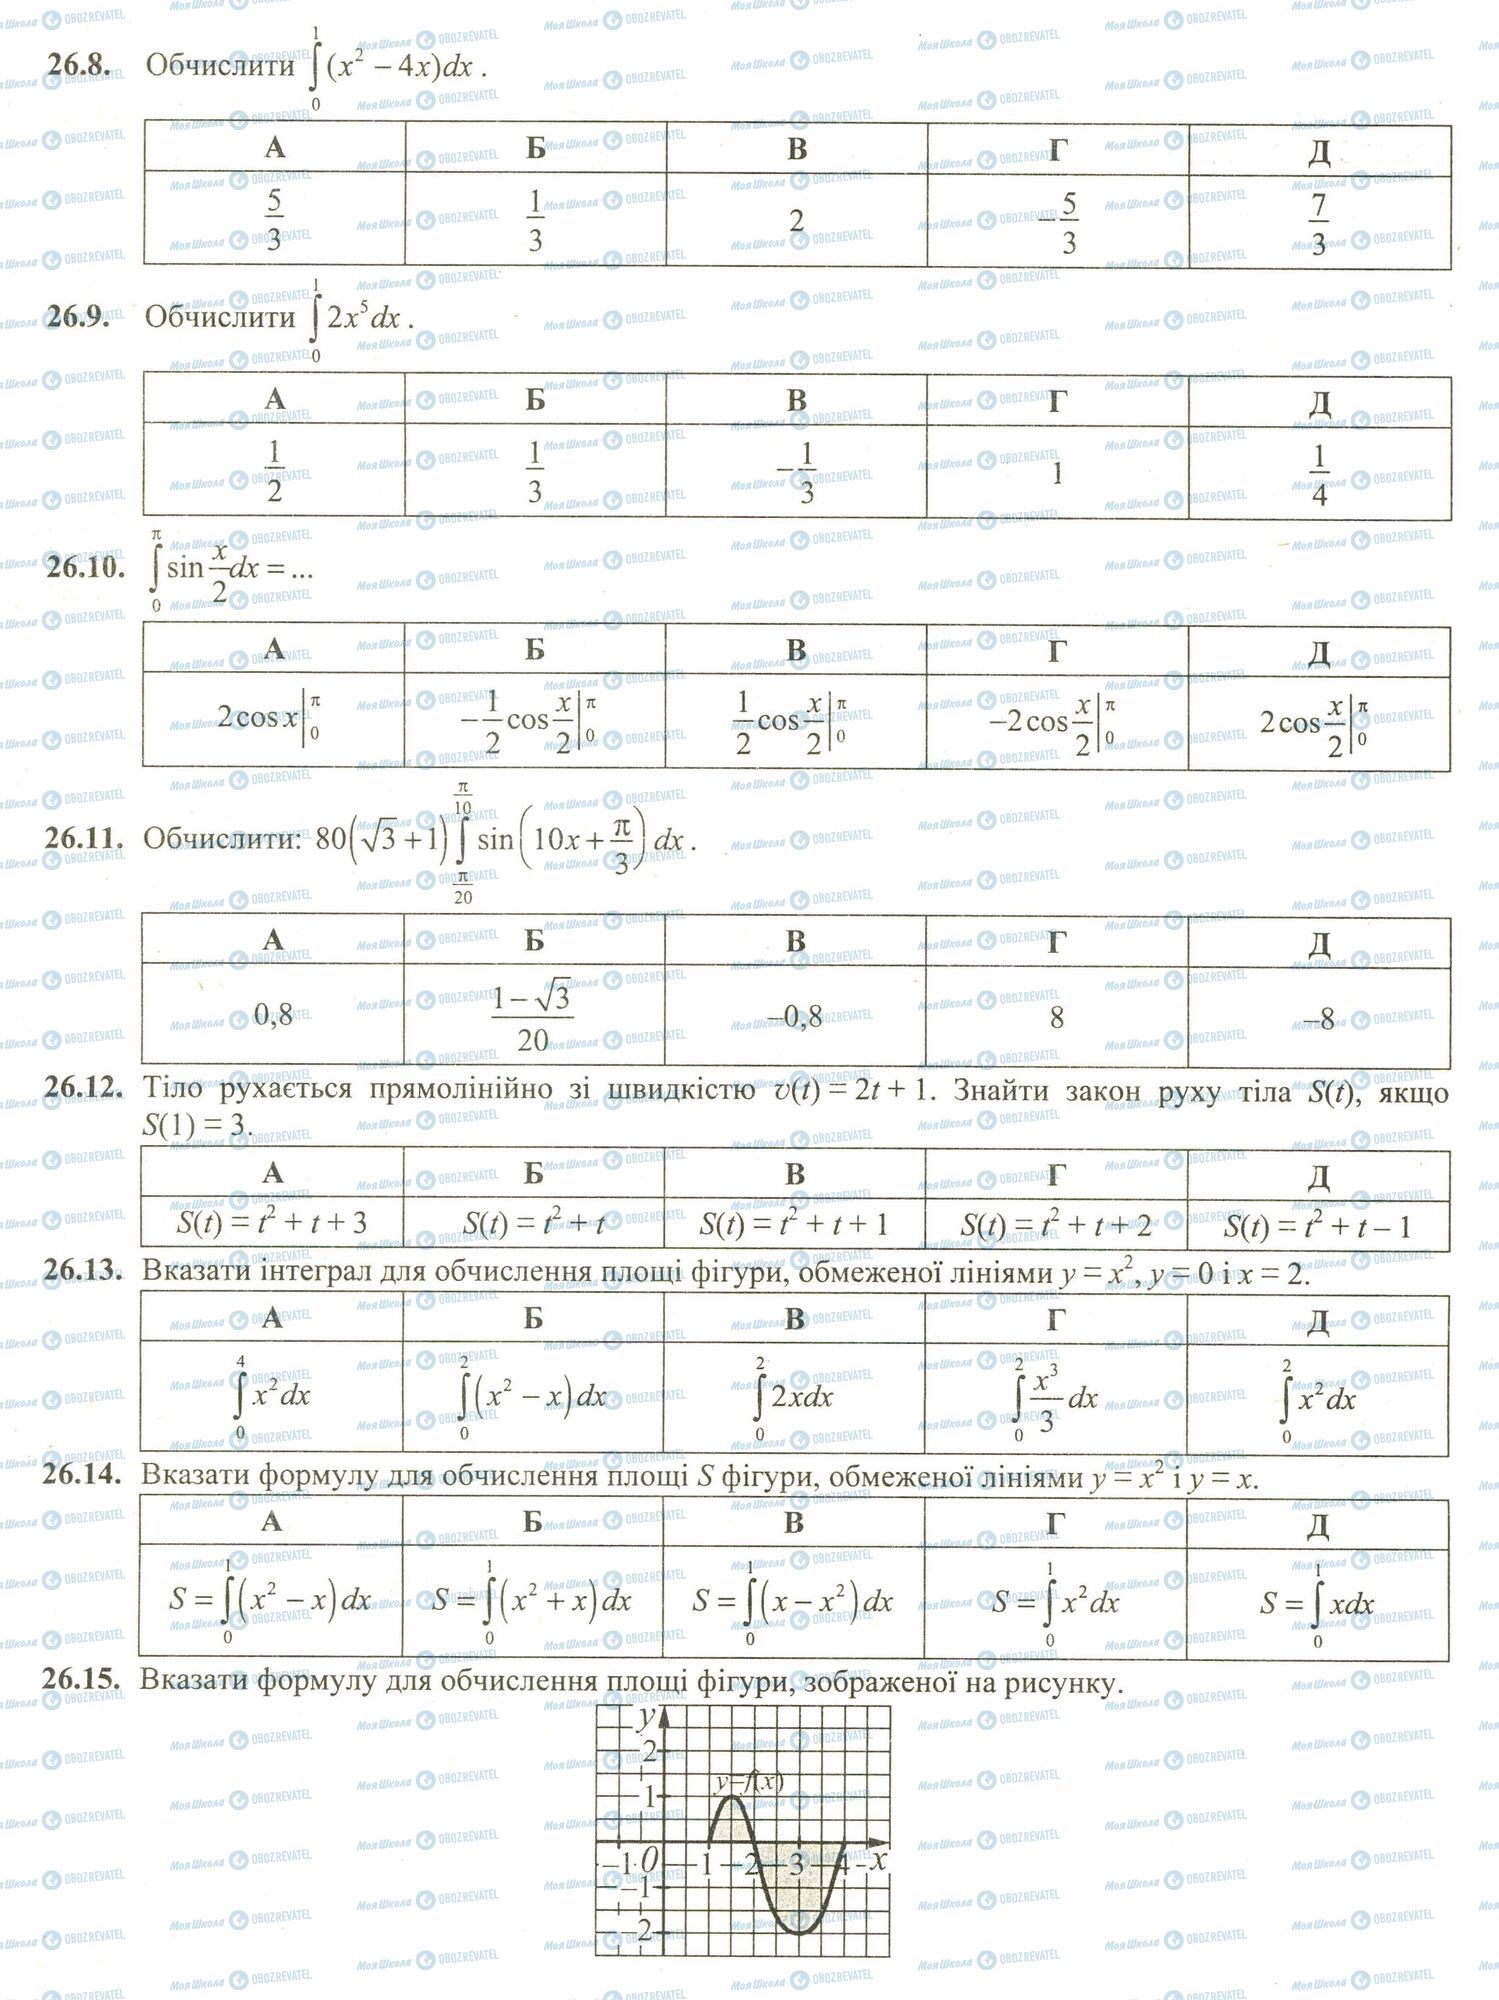 26.8. Обчислити ∫₀¹ (x² – 4x)dx .
А Б В Г Д
5/3 1/3 2 –5/3 7/3
26.9. Обчислити ∫₀¹ 2x⁵dx .
А Б В Г Д
1/2 1/3 –1/3 1 1/4
26.10. ∫₀^π sin x/2 dx = ...
А Б В Г Д
2cos x|₀^π –1/2 cos x/2|₀^π 1/2 cos x/2|₀^π –2cos x/2|₀^π 2cos x/2|₀^π
26.11. Обчислити: 80(√3 + 1) ∫_{π/20}^{π/10} sin(10x + π/3) dx .
А Б В Г Д
0,8 (1 – √3)/20 –0,8 8 –8
26.12. Тіло рухається прямолінійно зі швидкістю v(t) = 2t + 1. Знайти закон руху тіла S(t), якщо
S(1) = 3.
А Б В Г Д
S(t) = t² + t + 3 S(t) = t² + t S(t) = t² + t + 1 S(t) = t² + t + 2 S(t) = t² + t – 1
26.13. Вказати інтеграл для обчислення площі фігури, обмеженої лініями y = x², y = 0 і x = 2.
А Б В Г Д
∫₀⁴ x²dx ∫₀² (x² – x)dx ∫₀² 2xdx ∫₀² x³/3 dx ∫₀² x²dx
26.14. Вказати формулу для обчислення площі S фігури, обмеженої лініями y = x² і y = x.
А Б В Г Д
S = ∫₀¹ (x² – x)dx S = ∫₀¹ (x² + x)dx S = ∫₀¹ (x – x²)dx S = ∫₀¹ x²dx S = ∫₀¹ xdx
26.15. Вказати формулу для обчислення площі фігури, зображеної на рисунку.
y
2
y=f(x)
1
–1 O 1 2 3 4 x
–1
–2
МояШкола OBOZREVATEL